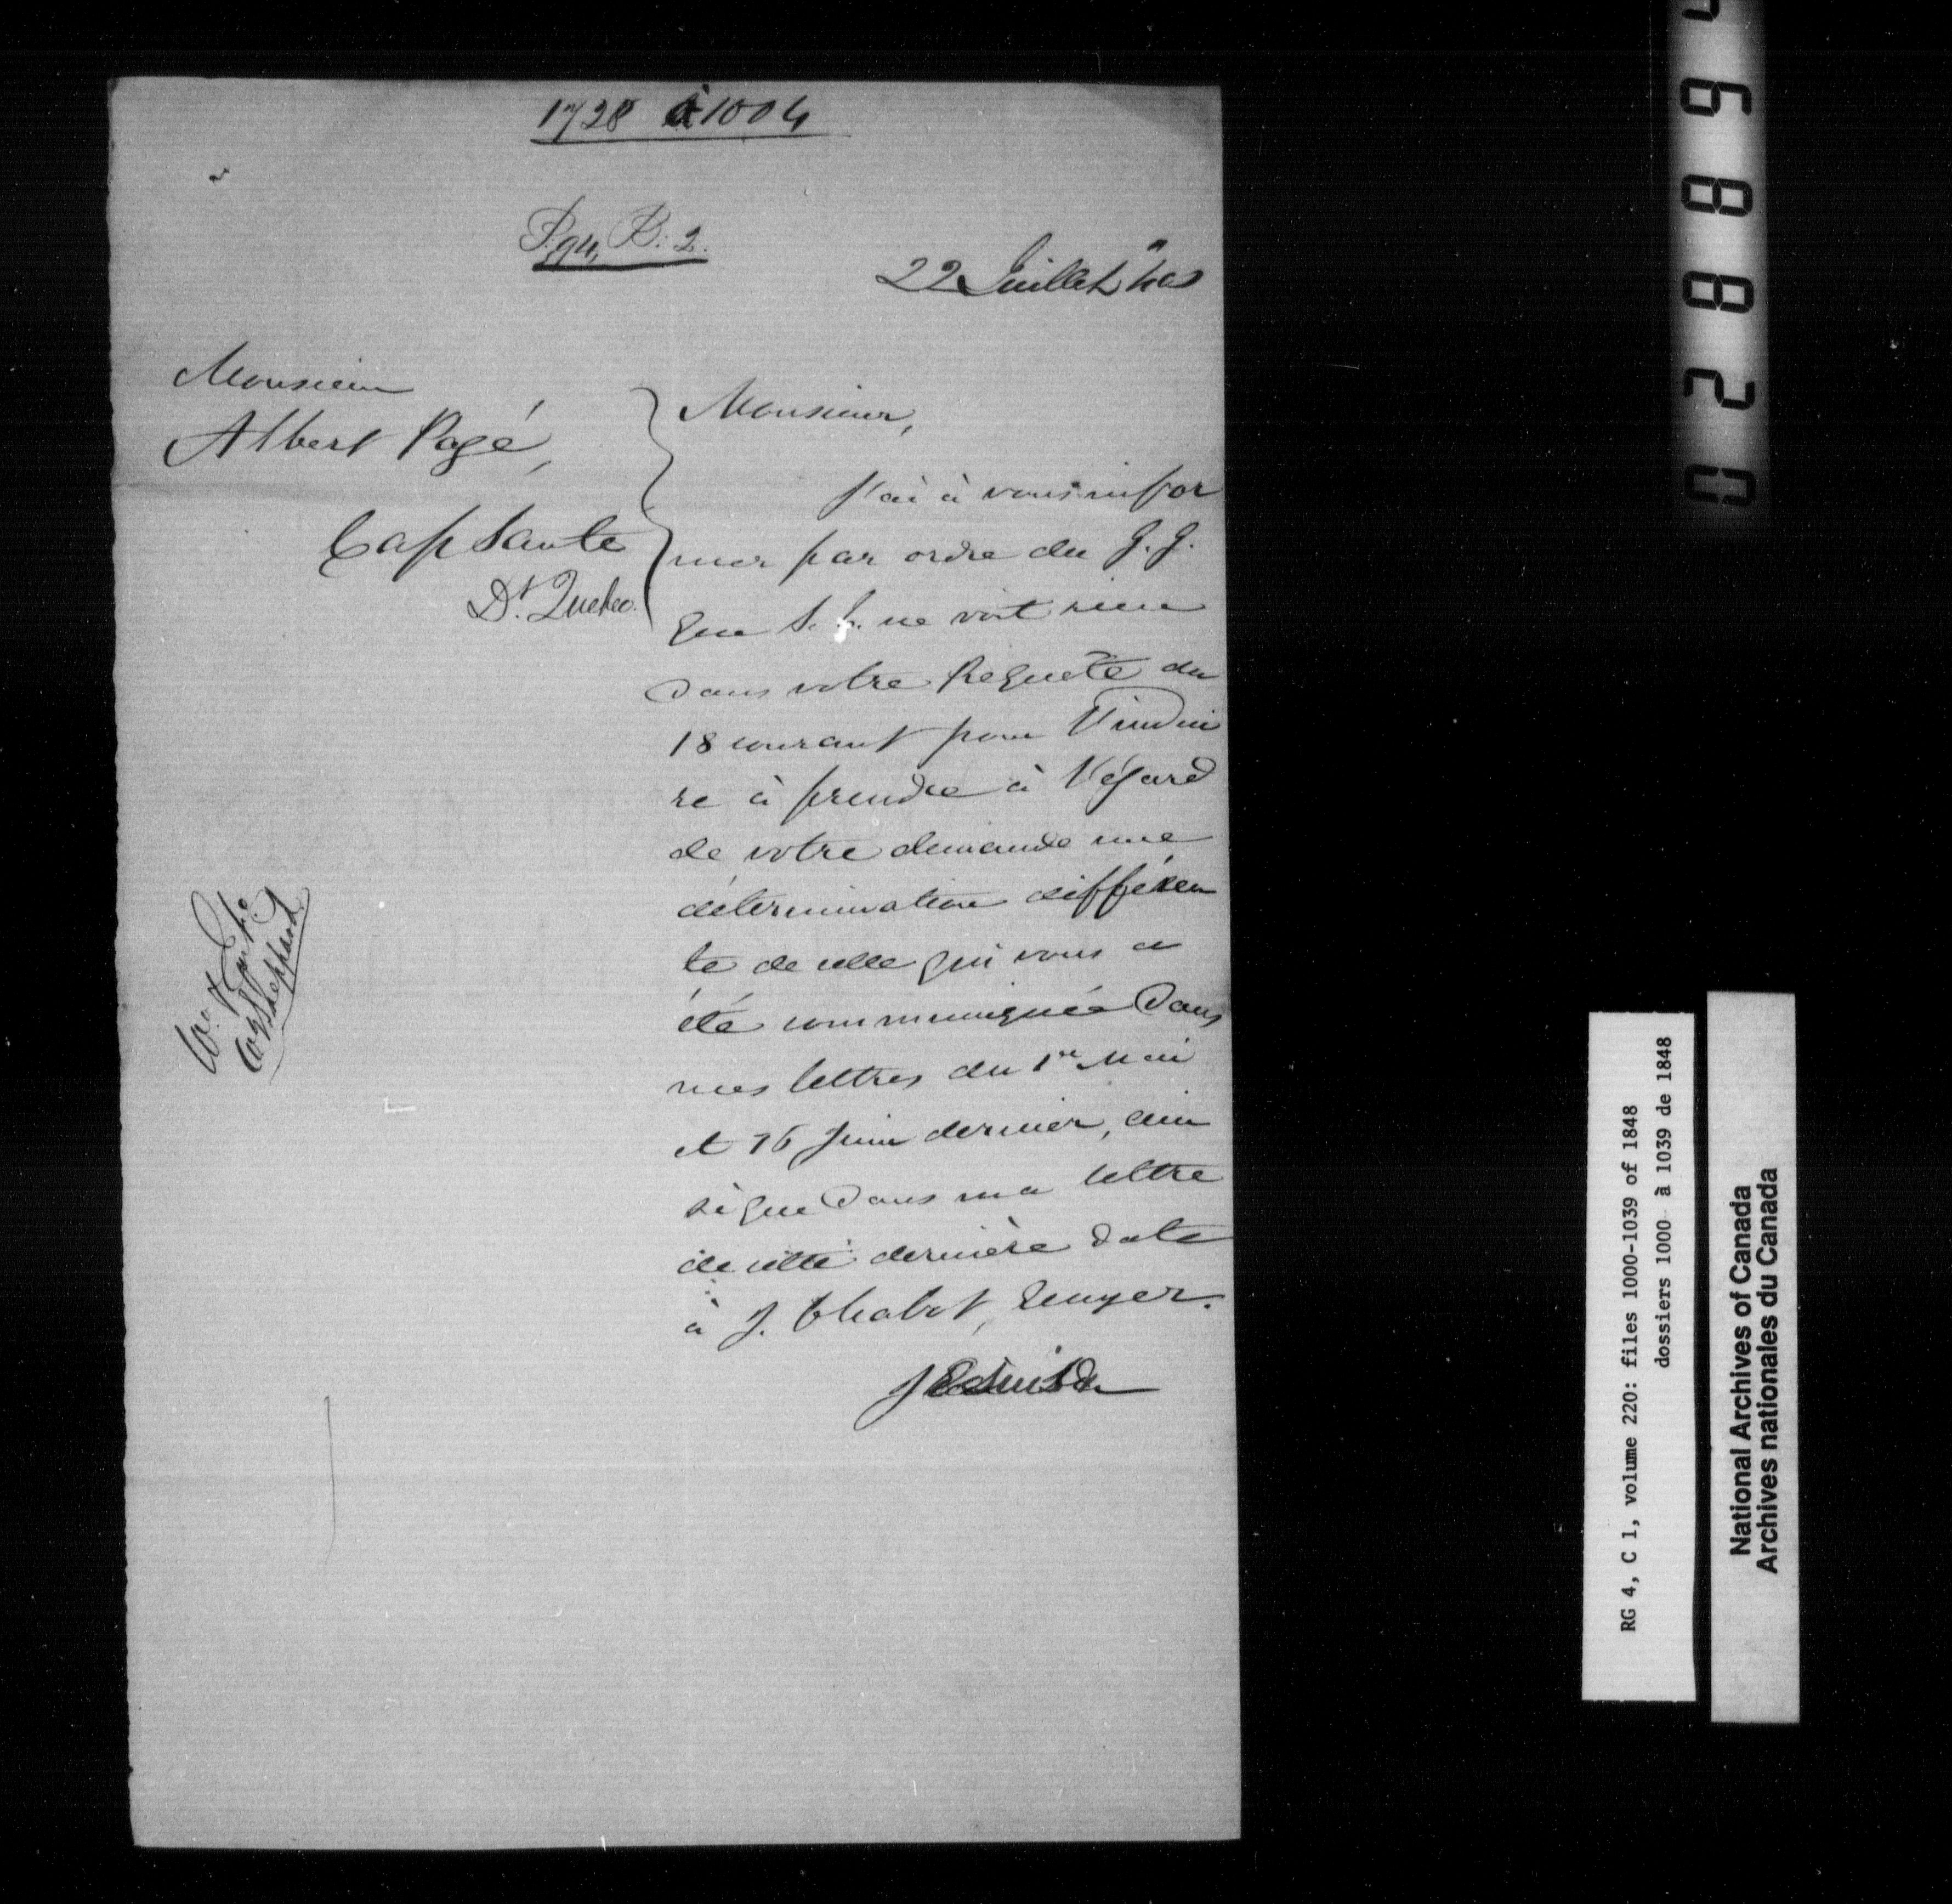 1728 à 1004
P. 94, B: 2.
22 Juillet
Monsieur
Albert Pagé,
Cap Sante
Dt. Quebec.
Monsieur,
J'ai à vous infor
mer par ordre du G. G.
que S. E. ne voit rien
dans votre Requête du
18 courant pour l'indui
re à prendre à l'égard
de votre demande une
détermination différen
te de celle qui vous a
été communiquée dans
mes lettres du 1er Mai
et 16 Juin dernier, ain
si que dans ma lettre
de cette dernière date
à J. Chabot, Ecuyer.
Sheppard
02889
RG 4, C 1, volume 220: files 1000-1039 of 1848
dossiers 1000 à 1039 de 1848
National Archives of Canada
Archives nationales du Canada